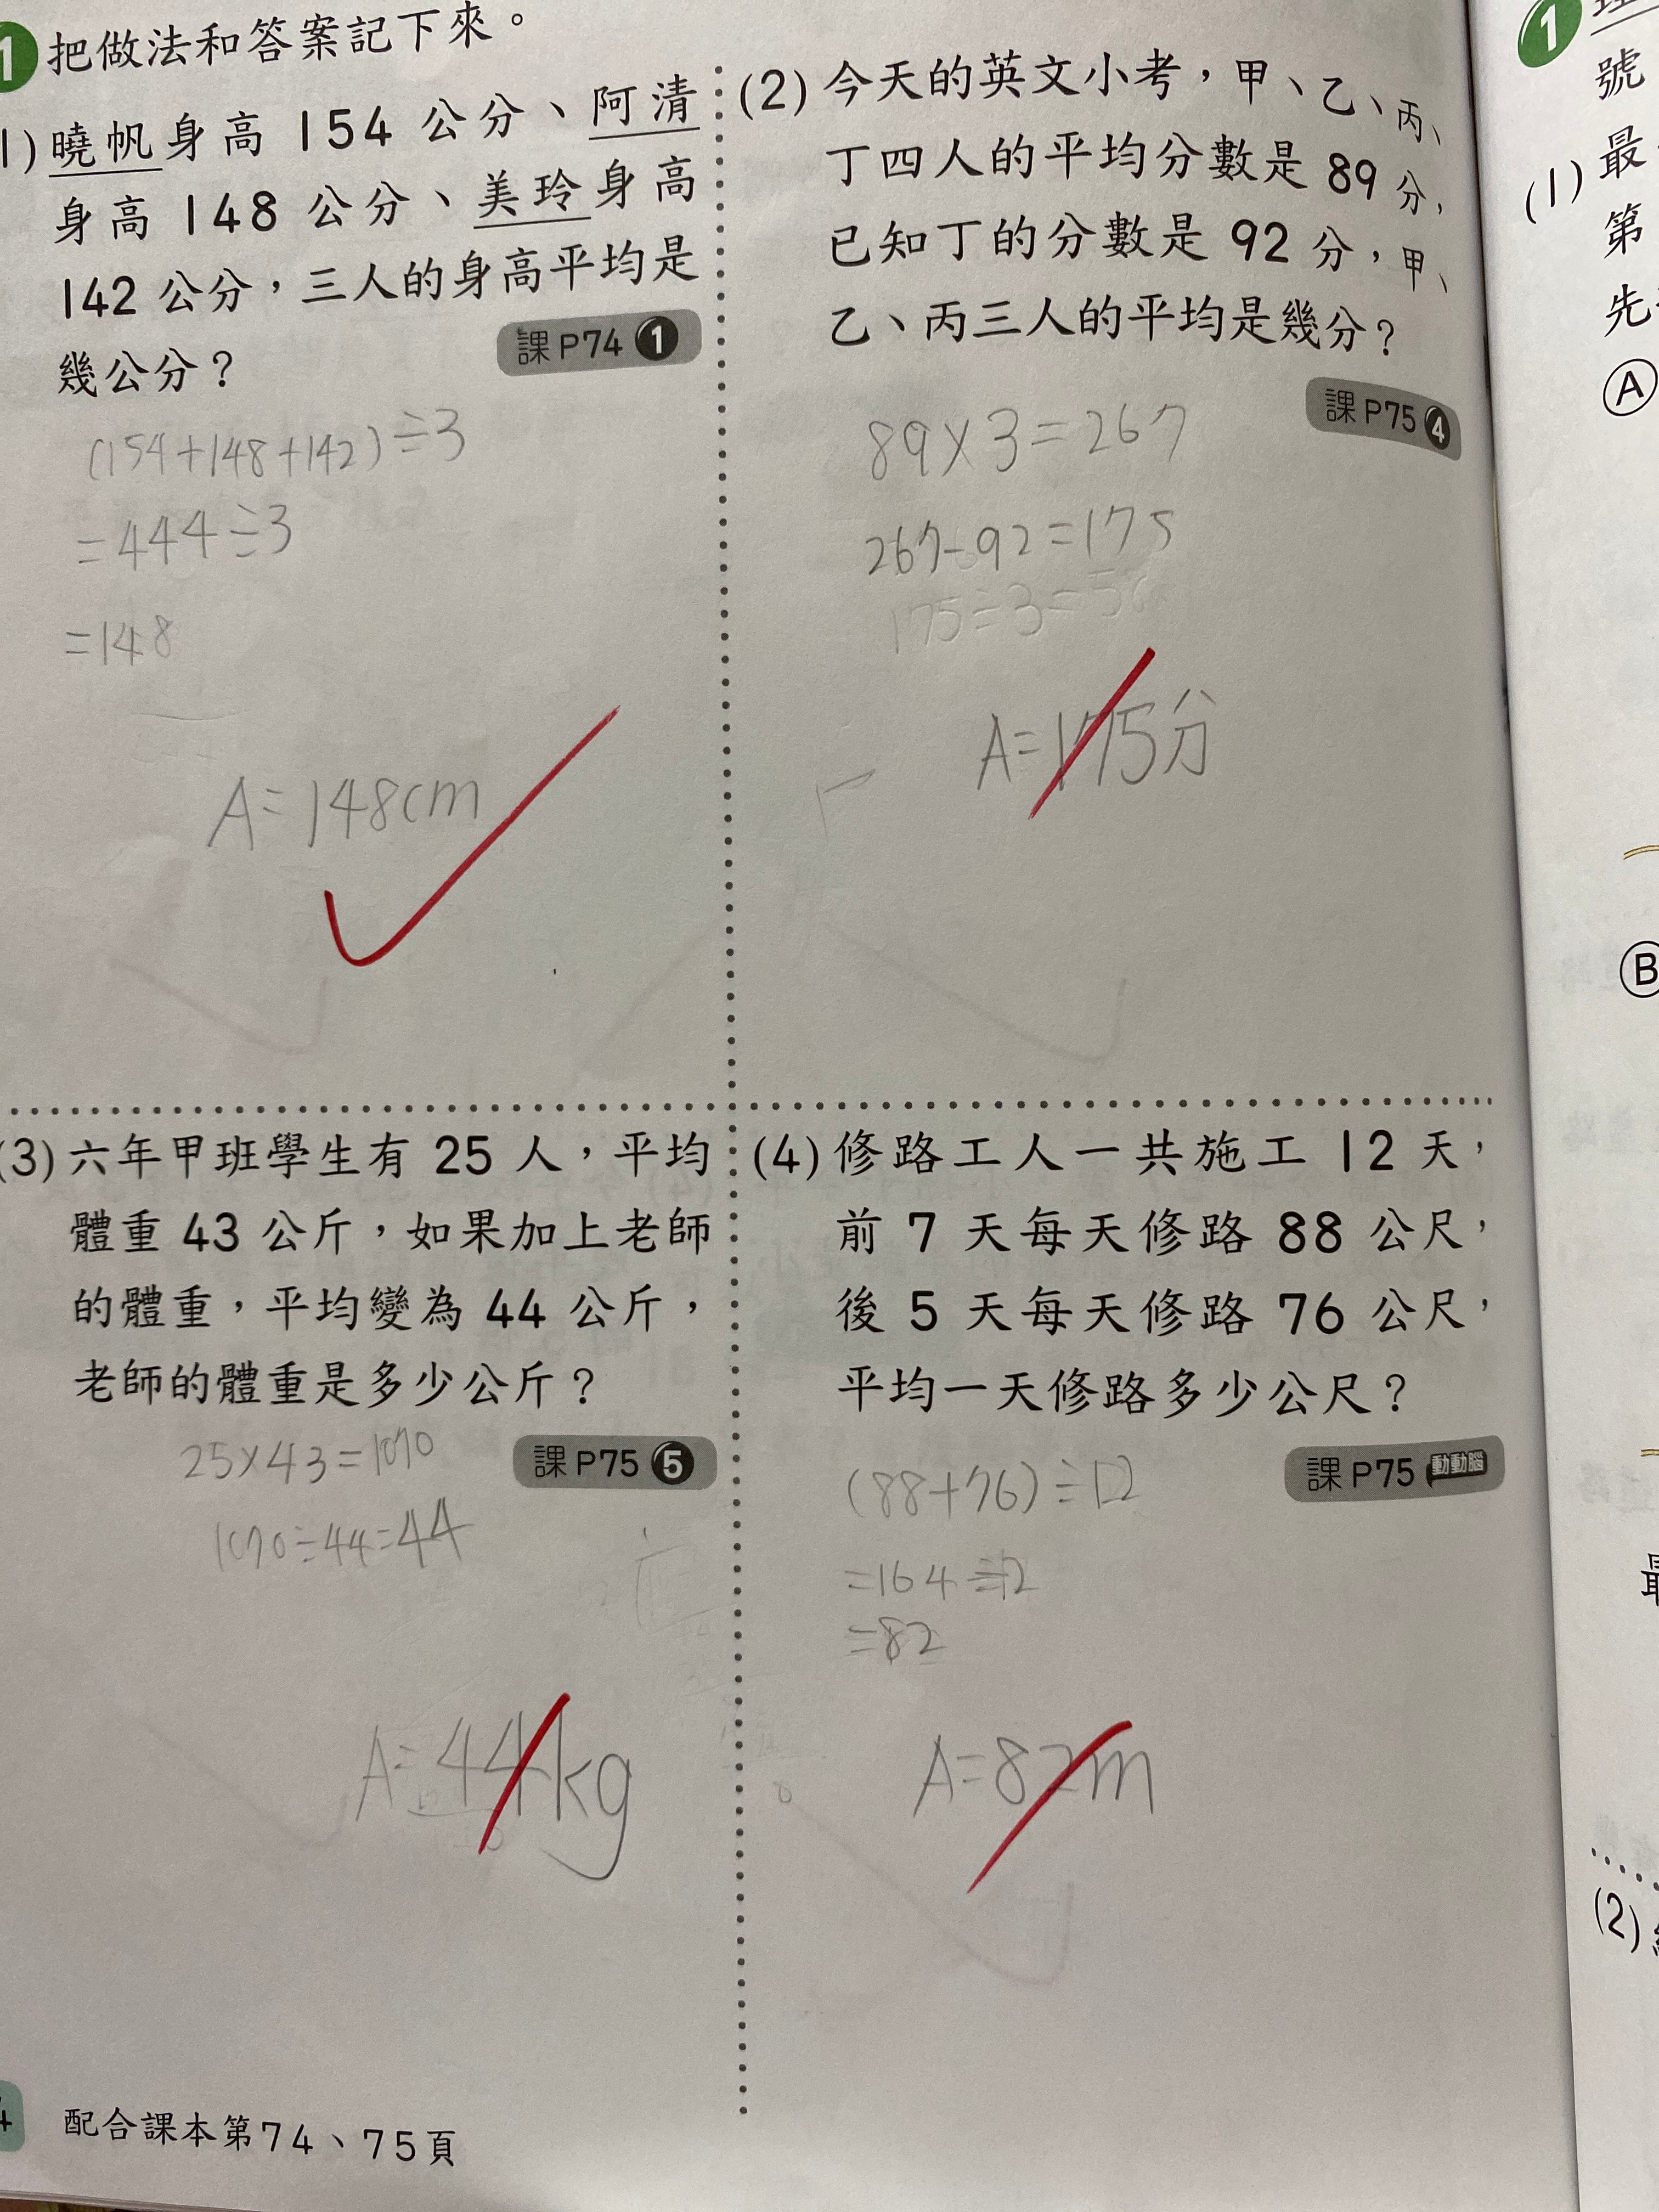 1 把做法和答案記下來。
1) 曉帆身高 154 公分、阿清
身高 148 公分、美玲身高
142 公分，三人的身高平均是
幾公分？
課 P74 1
(154+148+142)÷3
=444÷3
=148
A=148cm
(2) 今天的英文小考，甲、乙、丙、
丁四人的平均分數是 89 分，
已知丁的分數是 92 分，甲、
乙、丙三人的平均是幾分？
課 P75 4
89×3=267
267-92=175
175÷3=5
A=175分
(3) 六年甲班學生有 25 人，平均
體重 43 公斤，如果加上老師
的體重，平均變為 44 公斤，
老師的體重是多少公斤？
課 P75 5
25×43=1070
1070÷44=44
A=44kg
(4) 修路工人一共施工 12 天，
前 7 天每天修路 88 公尺，
後 5 天每天修路 76 公尺，
平均一天修路多少公尺？
課 P75 動動腦
(88+76)÷12
=164÷2
=82
A=82m
4 配合課本第74、75頁
1
號
(1) 最
第
先
A
B
最
(2)